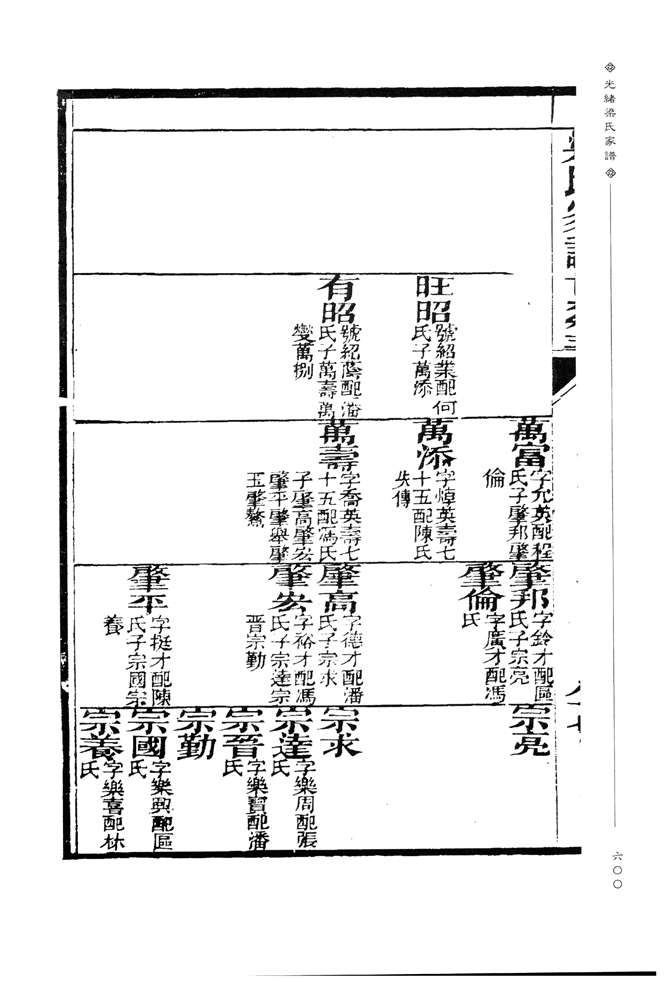 光緒梁氏家譜
六〇〇
旺昭
號紹業配何
氏子萬添
有昭
號紹蔭配潘
氏子萬壽萬
燮萬捌
萬富
字允英配程
氏子肇邦肇
倫
萬添
字焯英壽七
十五配陳氏
失傳
萬壽
字喬英壽七
十五配馮氏
子肇高肇宏
肇平肇舉肇
玉肇鰲
肇邦
字鈴才配區
氏子宗亮
肇倫
字廣才配馮
氏
肇高
字德才配潘
氏子宗求
肇宏
字裕才配馮
氏子宗達宗
晉宗勤
肇平
字挺才配陳
氏子宗國宗
養
宗亮
宗求
宗達
字樂周配張
氏
宗晉
字樂寶配潘
氏
宗勤
宗國
字樂興配區
氏
宗養
字樂喜配林
氏